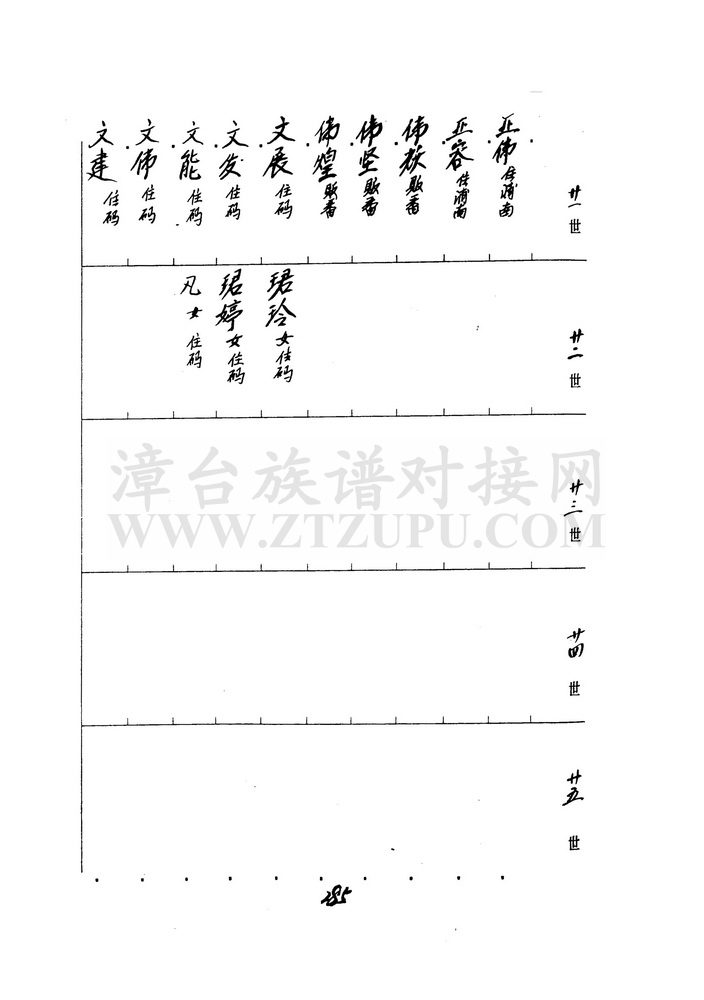 廿一世
亚伟 住浦南
亚容 住浦南
伟教 贩番
伟坚 贩番
伟煌 贩番
文展 住码
文发 住码
文能 住码
文伟 住码
文建 住码
廿二世
珺玲 女 住码
珺婷 女 住码
凡 女 住码
廿三世
廿四世
廿五世
漳台族谱对接网
WWW.ZTZUPU.COM
285